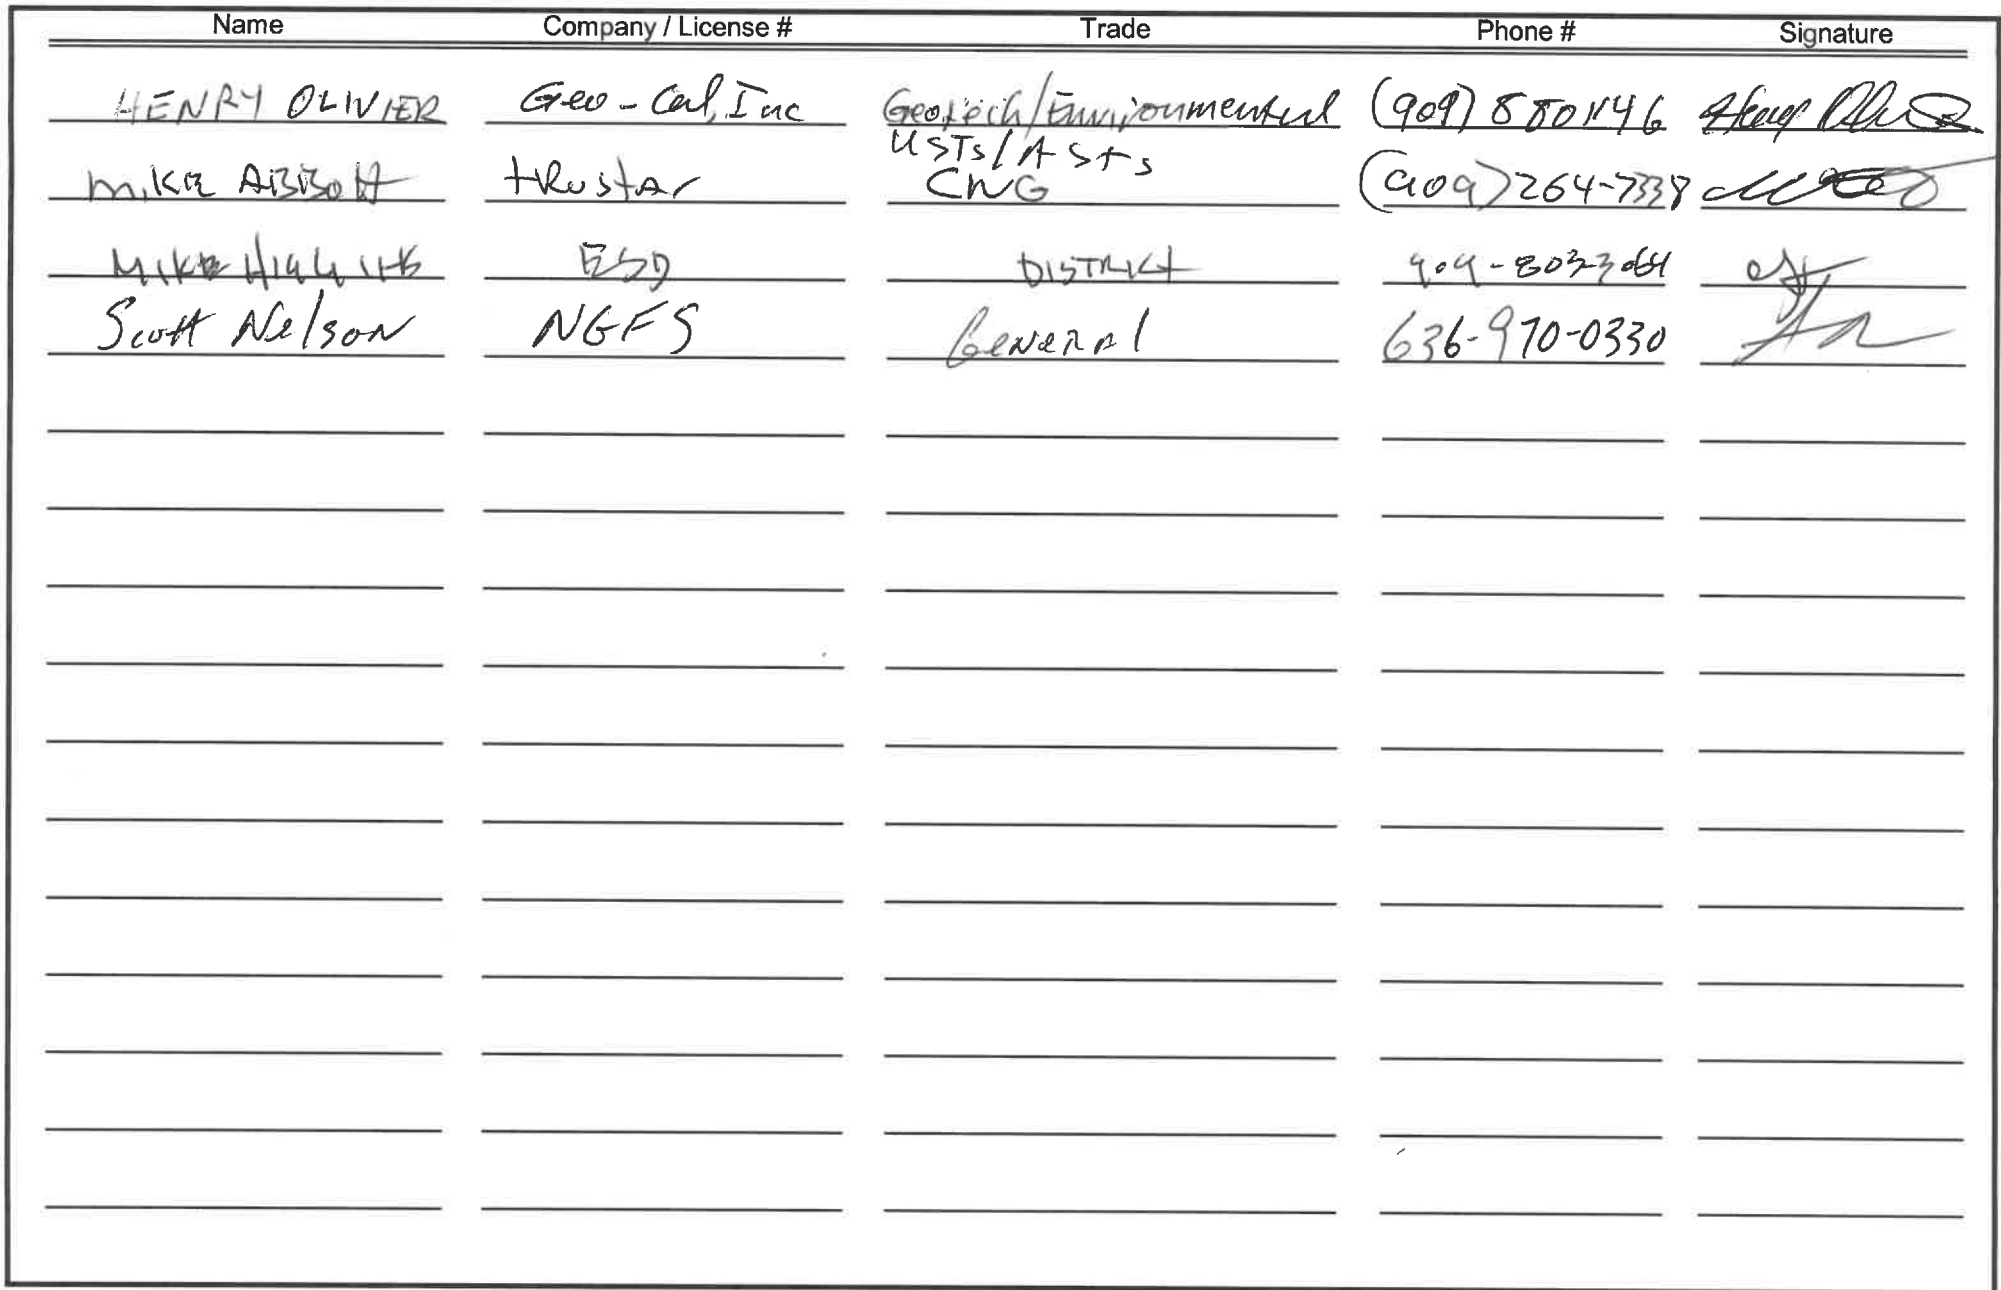 Name Company / License # Trade Phone # Signature
HENRY OLIVIER Geo-Cal, Inc Geotech/Environmental (909) 8801146
USTs/ASTs
MIKE ABBOTT tRustar CNG (909) 264-7338
MIKE ESD DISTRICT
Scott Nelson NGFS General 636-970-0330